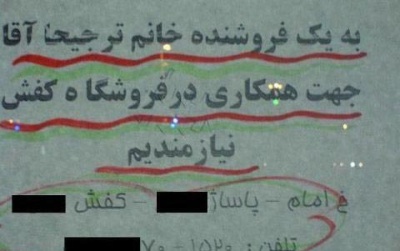 به یک فروشنده خانم ترجیحا آقا
جهت همکاری در فروشگاه کفش
نیازمندیم
خ امام - پاساژ - کفش
تلفن: ۱۵۲۰ - ۷۰